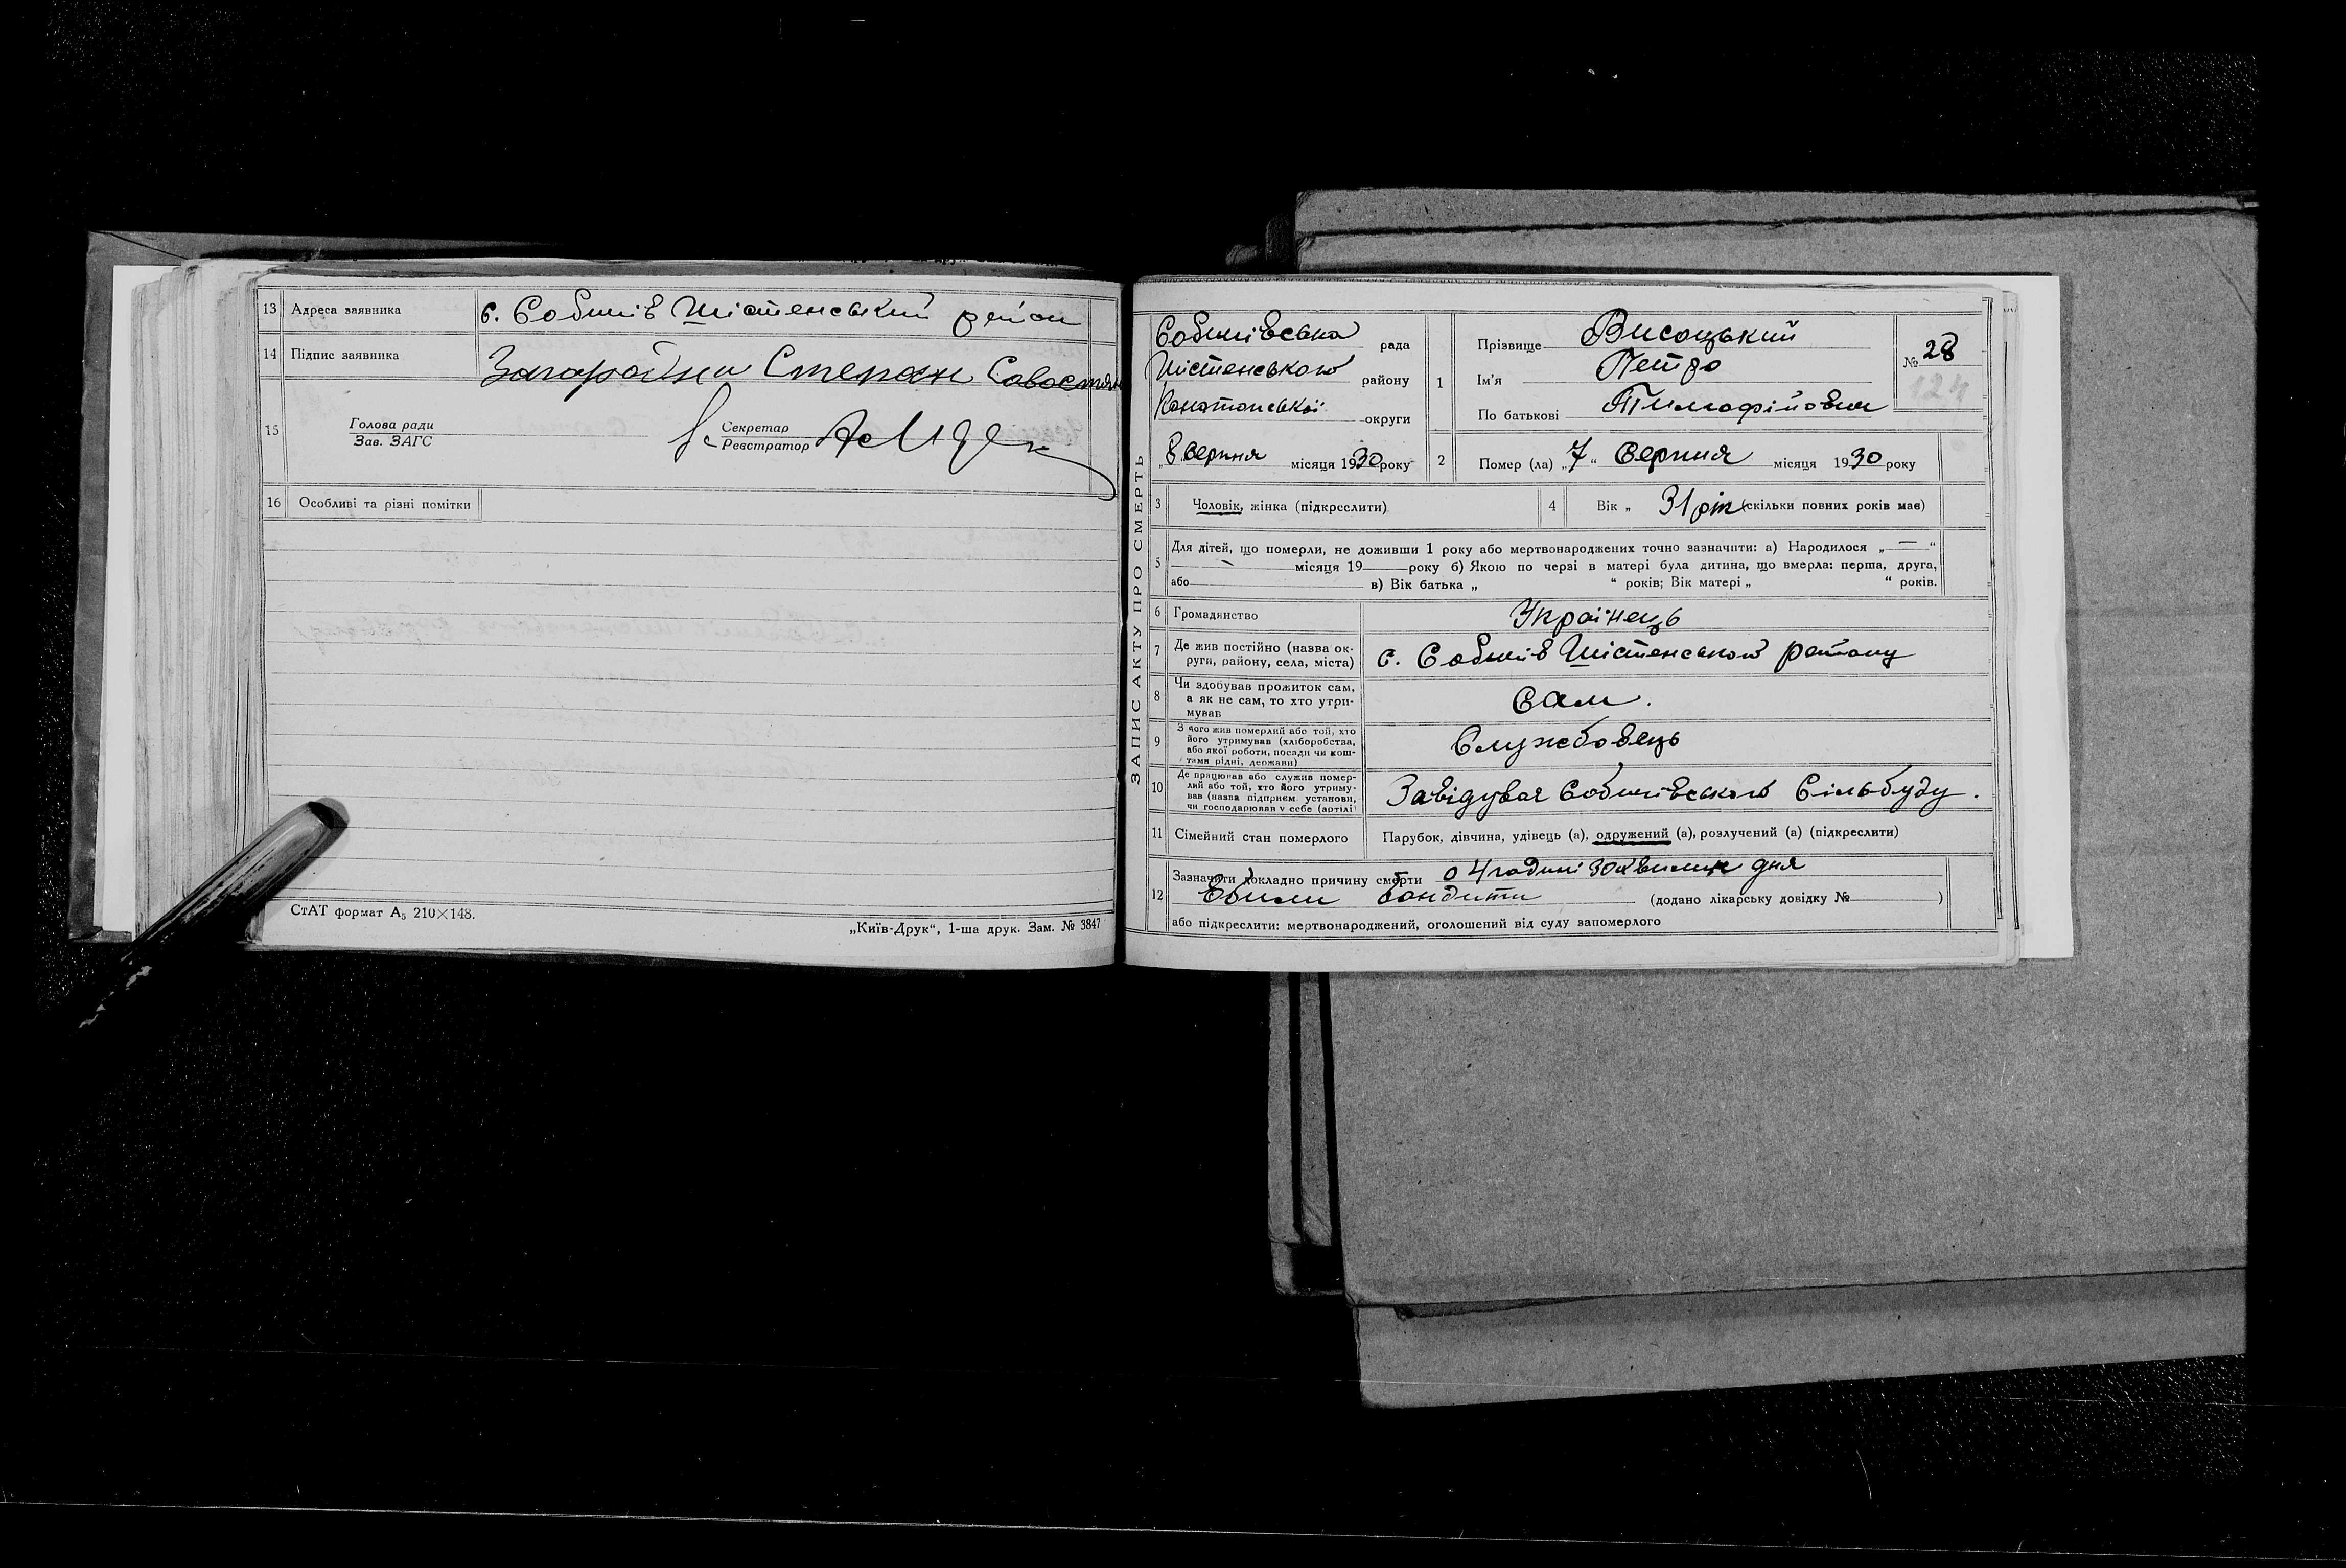 13 Адреса заявника с. Собичів Шістенський район
14 Підпис заявника Загорайни Степан
15 Голова ради
Зав. ЗАГС
Секретар
Реєстратор
16 Особливі та різні помітки
СтАТ формат А₅ 210×148.
„Київ-Друк“, 1-ша друк. Зам. № 3847
ЗАПИС АКТУ ПРО СМЕРТЬ
Собичівська рада
Шістенського району
Конотопської округи
„8 серпня місяця 1930 року
1 Прізвище Висоцький
Ім'я Петро
По батькові Тимофійович
№ 28
124
2 Помер (ла) „7“ Серпня місяця 1930 року
3 Чоловік, жінка (підкреслити)
4 Вік „ 31 рік (скільки повних років має)
5 Для дітей, що померли, не доживши 1 року або мертвонароджених точно зазначити: а) Народилося „—“
— місяця 19 року б) Якою по черзі в матері була дитина, що вмерла: перша, друга,
або в) Вік батька „ “ років; Вік матері „ “ років.
6 Громадянство Українець
7 Де жив постійно (назва ок-
руги, району, села, міста) с. Собичів Шістенського району
8 Чи здобував прожиток сам,
а як не сам, то хто утри-
мував Сам.
9 З чого жив померлий або той, хто
його утримував (хліборобства,
або якої роботи, посади чи кош-
тами рідні, держави) Службовець
10 Де працював або служив помер-
лий або той, хто його утриму-
вав (назва підприєм. установи,
чи господарював у себе (артілі) Завідувач Собичівського Сільбуду.
11 Сімейний стан померлого Парубок, дівчина, удівець (а), одружений (а), розлучений (а) (підкреслити)
12 Зазначити докладно причину смерти о 4 годині 30 хвилин дня
Вбили бандити (додано лікарську довідку № )
або підкреслити: мертвонароджений, оголошений від суду запомерлого